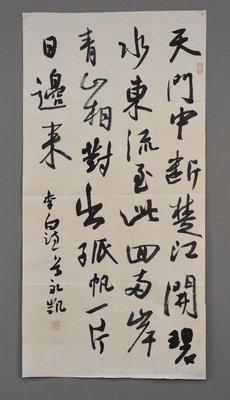 天門中斷楚江開碧
水東流至此回兩岸
青山相對出孤帆一片
日邊来
李白詩 永凱